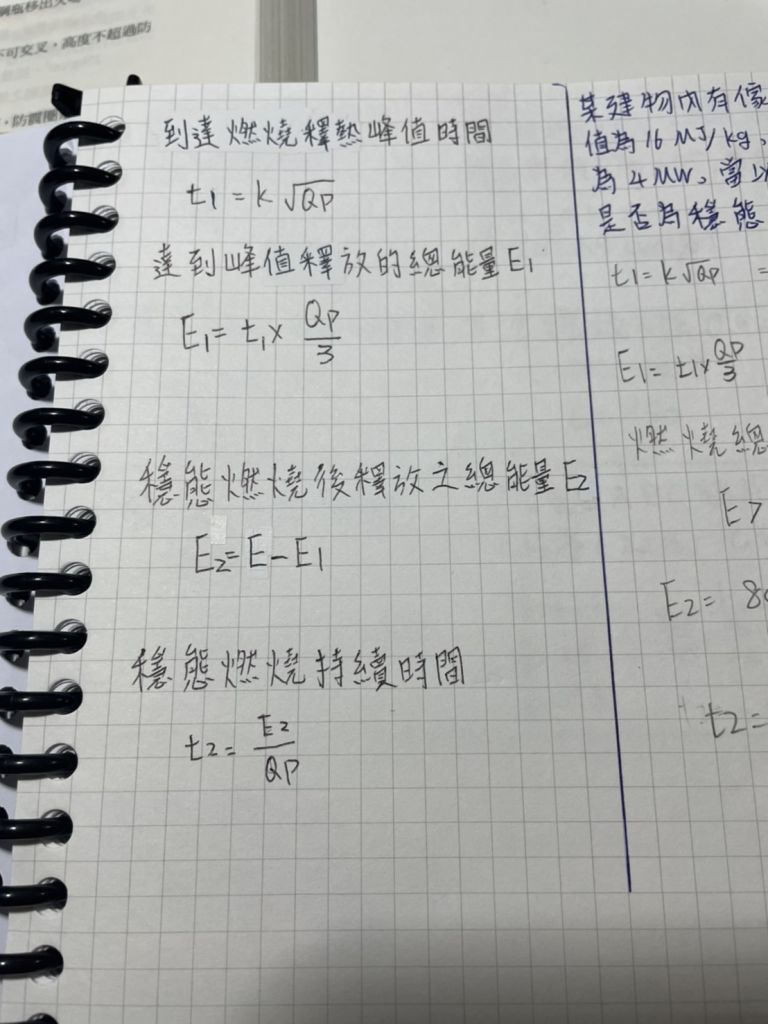 不可交叉，高度不超過防
到達燃燒釋熱峰值時間
t₁ = k √Qp
達到峰值釋放的總能量E₁
E₁ = t₁ × Qp/3
穩態燃燒後釋放之總能量E₂
E₂ = E - E₁
穩態燃燒持續時間
t₂ = E₂/Qp
某建物內有傢
值為16 MJ/kg,
為4MW, 當以
是否為穩態
t₁ = k √Qp =
E₁ = t₁ × Qp/3
燃燒總
E >
E₂ = 80
t₂ =